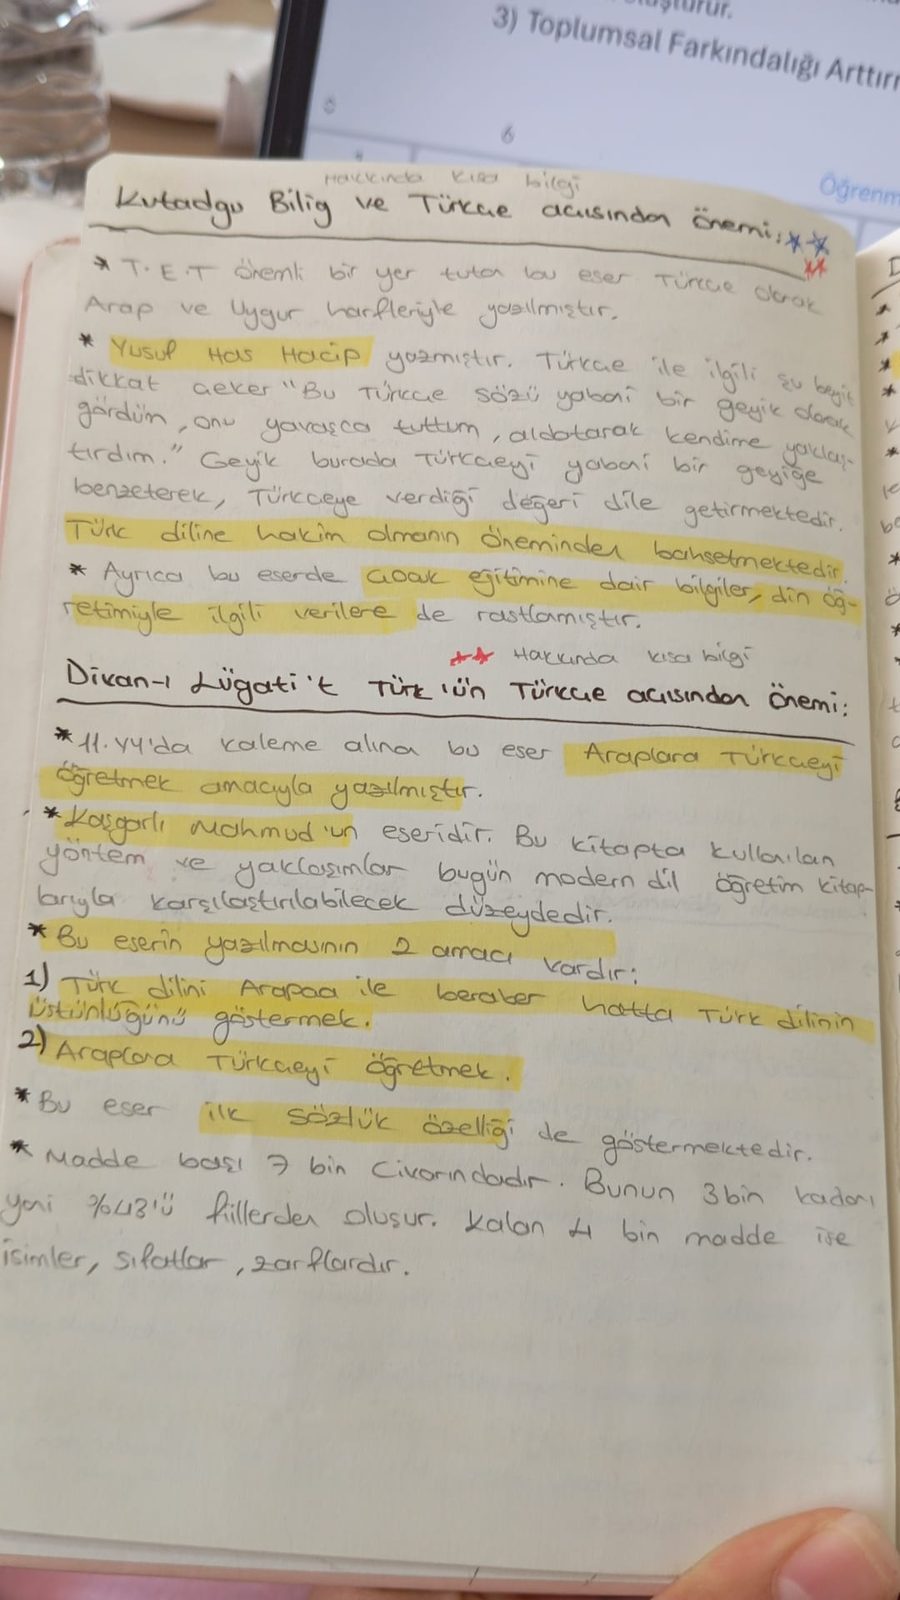 3) Toplumsal Farkındalığı Arttır
6
Öğrenm
Hakkında kısa bilgi
Kutadgu Bilig ve Türkçe açısından önemi:
* T.E.T önemli bir yer tutan bu eser Türkçe olarak
Arap ve Uygur harfleriyle yazılmıştır.
* Yusuf Has Hacip yazmıştır. Türkçe ile ilgili şu beyit
dikkat çeker "Bu Türkçe sözü yabani bir geyik olarak
gördüm, onu yavaşca tuttum, aldatarak kendime yaklaş-
tırdım." Geyik burada Türkçeyi yabani bir geyiğe
benzeterek, Türkçeye verdiği değeri dile getirmektedir.
Türk diline hakim olmanın öneminden bahsetmektedir.
* Ayrıca bu eserde çocuk eğitimine dair bilgiler, din öğ-
retimiyle ilgili verilere de rastlamıştır.
** Hakkında kısa bilgi
Divan-ı Lügati't Türk'ün Türkçe açısından önemi:
* 11.yy'da kaleme alınan bu eser Araplara Türkçeyi
öğretmek amacıyla yazılmıştır.
* Kaşgarlı Mahmud'un eseridir. Bu kitapta kullanılan
yöntem ve yaklaşımlar bugün modern dil öğretim kitap-
larıyla karşılaştırılabilecek düzeydedir.
* Bu eserin yazılmasının 2 amacı vardır:
1) Türk dilini Arapça ile beraber hatta Türk dilinin
üstünlüğünü göstermek.
2) Araplara Türkçeyi öğretmek.
* Bu eser ilk sözlük özelliği de göstermektedir.
* Madde başı 7 bin civarındadır. Bunun 3 bin kadarı
yani %43'ü fiillerden oluşur. Kalan 4 bin madde ise
isimler, sıfatlar, zarflardır.